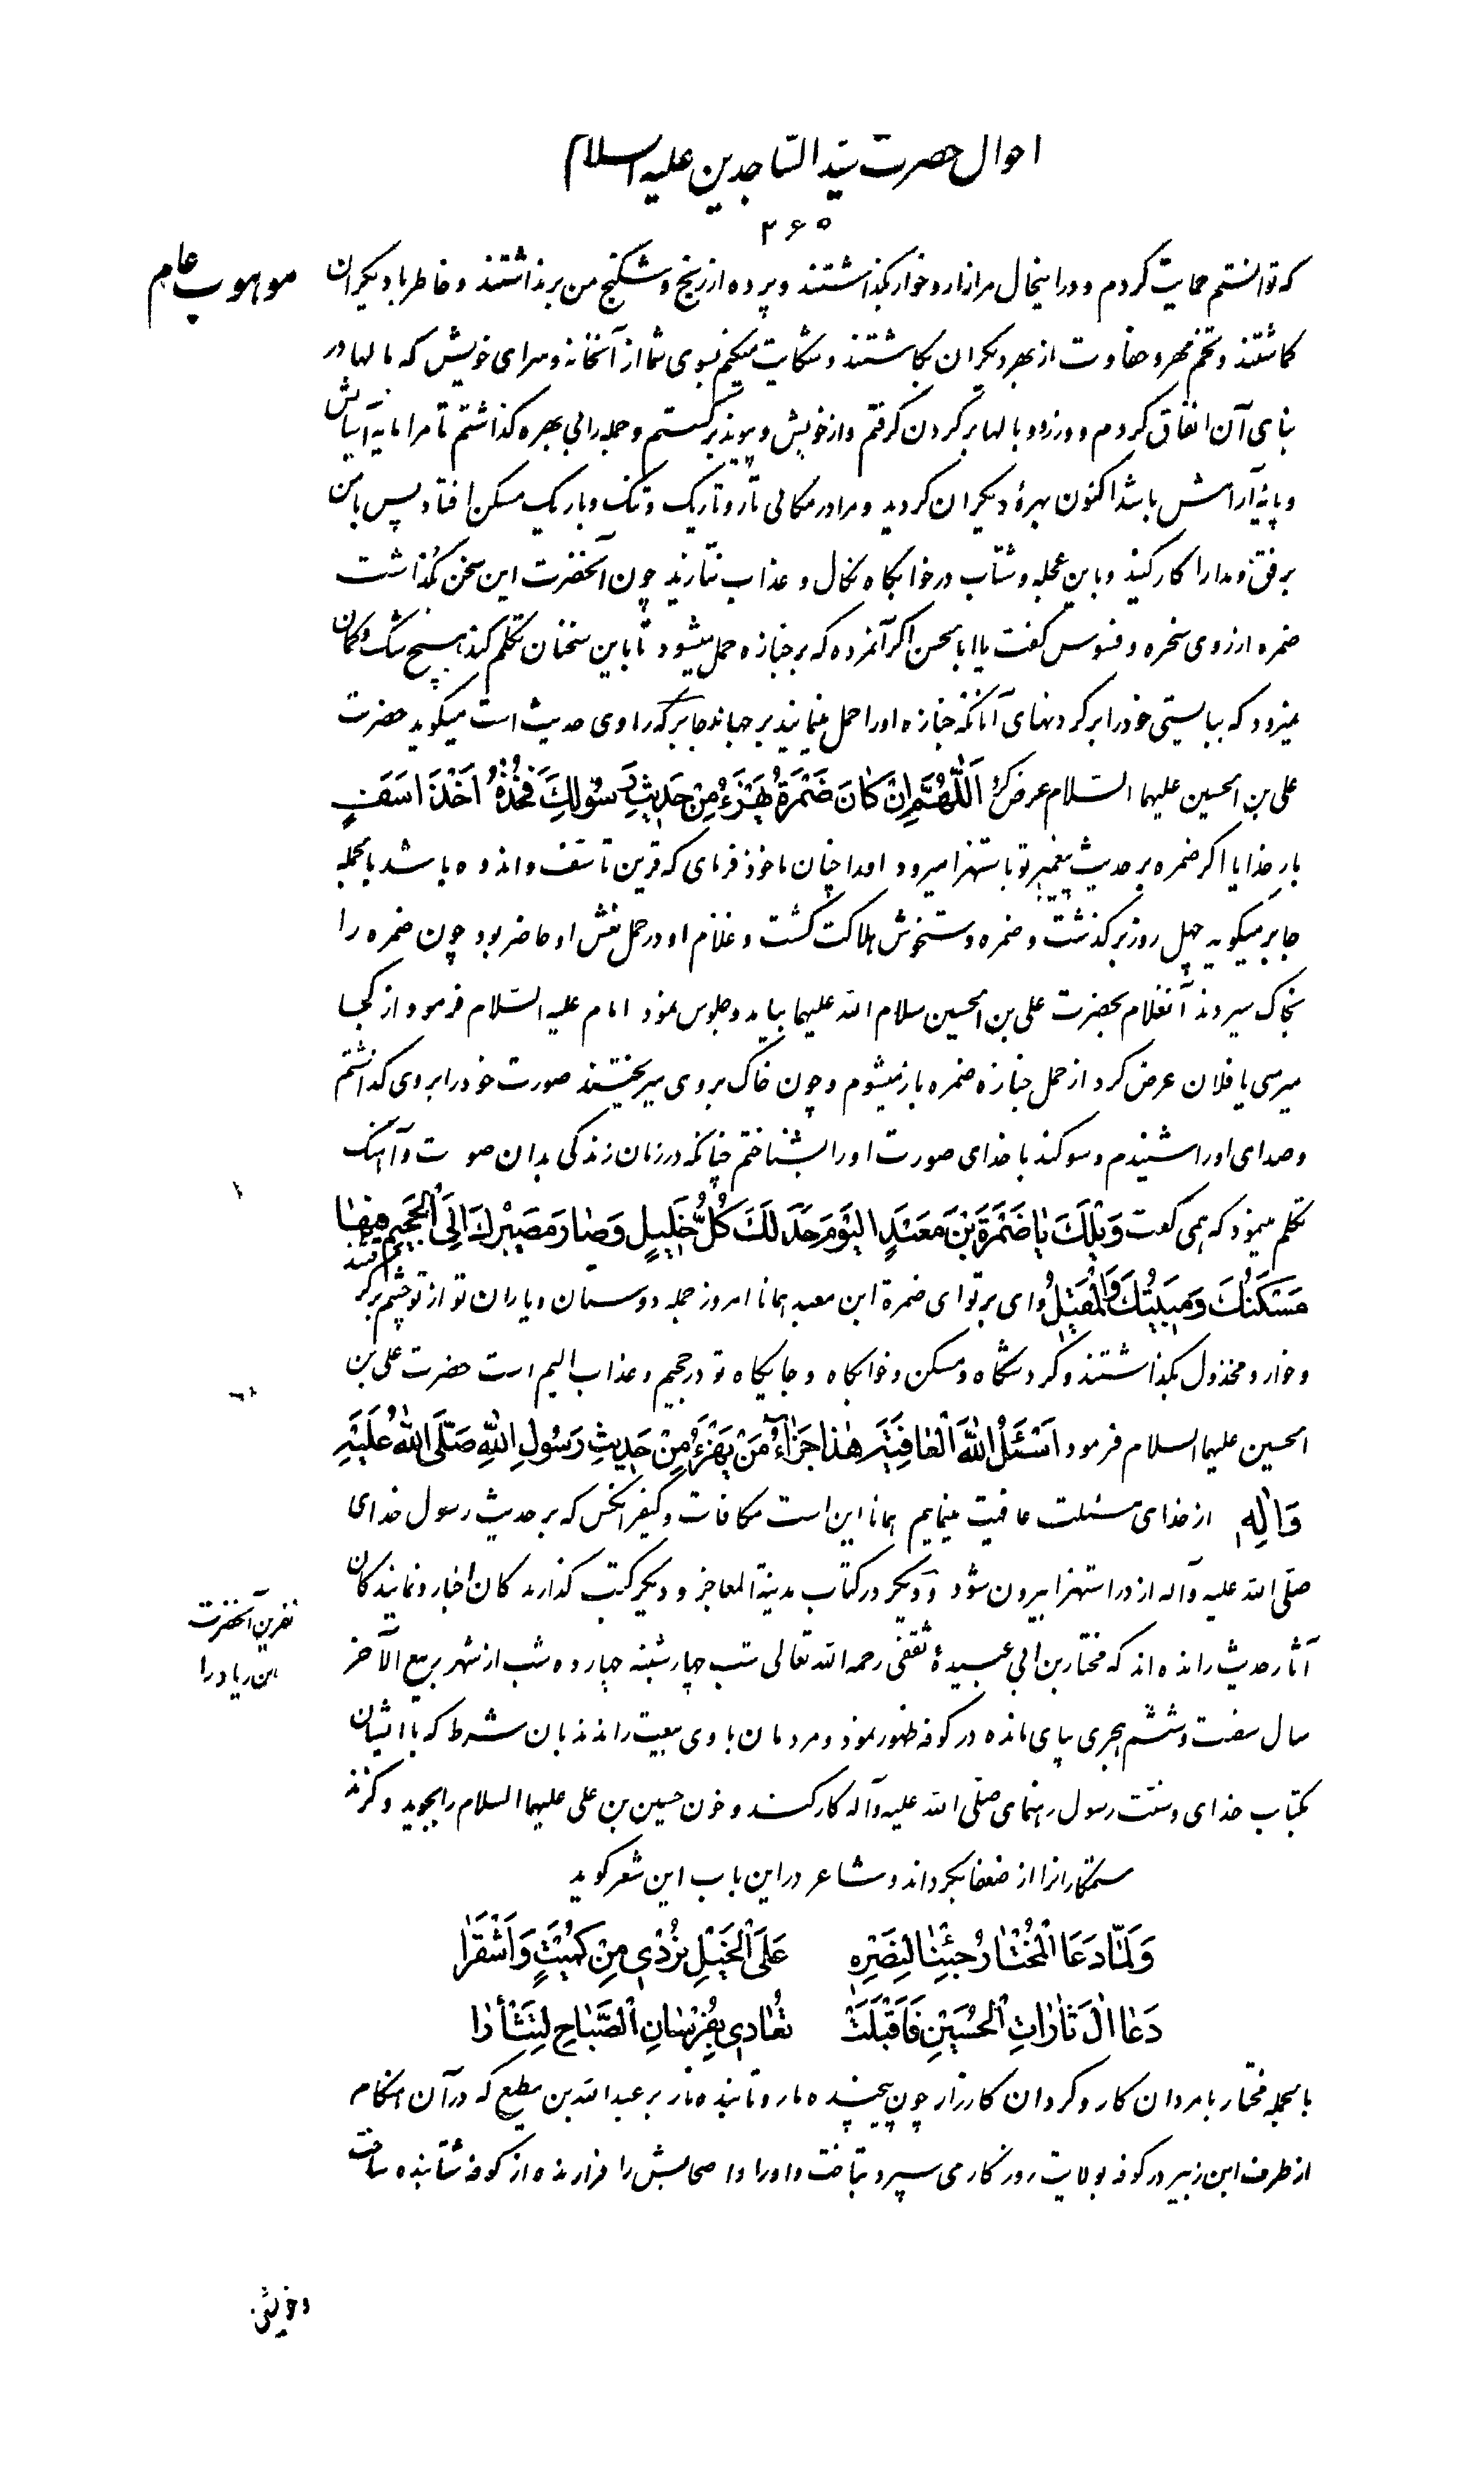 احوال حضرت سید الساجدین علیه السلام
۲۶۵
موهوب عام
که توانستم حمایت کردم و در اینحال مرا زار و خوار بگذاشتند و پرده از رنج و شکنج من برنداشتند و خاطر با دیگران
کماشتند و تخم مهر و حفاوت از بهر دیگران بکاشتند و شکایت میکنم بسوی شما از آنخانه و سرای خویش که مالها در
بنای آن انفاق کردم و وزر و وبالها بر کردن کرفتم و از خویش و پیوند برکسستم و جمله را بی بهره کذاشتم تا مرا مایه آسایش
و پایه آرامش باشد اکنون بهرهٔ دیکران کردید و مرا در مکانی تار و تاریک و تنک و باریک مسکن افتاد پس با من
برفق و مدارا کار کنید و باین عجله و شتاب در خوابکاه نکال و عذاب نیارید چون آنحضرت این سخن بگذاشت
ضمره از روی سخره و فسوس کفت یا ابا لحسن اکر آنمرده که بر جنازه حمل میشود تا باین سخنان تکلم کند هیچ شک و کمان
نمیرود که ببایستی خود را بر کردنهای آنانکه جنازه او را حمل مینمایند بر جهاند جابر که راوی حدیث است میکوید حضرت
علی بن الحسین علیهما السلام عرض کرد اَللّٰهُمَّ اِنْ کٰانَ ضَمْرَةُ یَهْزَءُ مِنْ حَدِیثِ رَسُولِکَ فَخُذْهُ اَخْذَ اَسَفٍ
بار خدایا اکر ضمره بر حدیث پیغمبر تو باستهزا میرود او را چنان ماخوذ فرمای که قرین تاسف و اندوه باشد بالجمله
جابر میکوید چهل روز بر کذشت و ضمره دستخوش هلاکت کشت و غلام او در حمل نعش او حاضر بود چون ضمره را
بخاک سپردند آنغلام بحضرت علی بن الحسین سلام الله علیهما بیامد و جلوس نمود امام علیه السلام فرمود از کجا
میرسی یا فلان عرض کرد از حمل جنازه ضمره باز میشوم و چون خاک بر وی میریختند صورت خود را بر وی کذاشتم
و صدای او را شنیدم و سوکند با خدای صورت او را بشناختم چنانکه در زمان زندکی بدان صوت و آهنک
تکلم مینمود که همی کفت وَیْلَکَ یٰا ضَمْرَةَ بْنَ مَعْبَدٍ الْیَوْمَ خَذَلَکَ کُلُّ خَلِیلٍ وَصٰارَ مَصِیرُکَ اِلَی الْجَحِیمِ فِیهٰا
مَسْکَنُکَ وَمَبِیتُکَ وَالْمَقِیلُ وای بر تو ای ضمرة ابن معبد همانا امروز جمله دوستان و یاران تو از تو چشم بر کرفتند
و خوار و مخذول بگذاشتند و کردشکاه و مسکن و خوابکاه و جایکاه تو در جحیم و عذاب الیم است حضرت علی بن
الحسین علیهما السلام فرمود اَسْئَلُ اللّٰهَ الْعٰافِیَةَ هٰذٰا جَزٰاءُ مَنْ یَهْزَءُ مِنْ حَدِیثِ رَسُولِ اللّٰهِ صَلَّی اللّٰهُ عَلَیْهِ
وَاٰلِهِ از خدای مسئلت عافیت مینمایم همانا این است مکافات و کیفر آنکس که بر حدیث رسول خدای
صلی الله علیه وآله از در استهزا بیرون شود و دیکر در کتاب مدینة المعاجز و دیکر کتب کذارندکان اخبار و نمایندکان
نفرین آنحضرت
ابن زیاد را
آثار حدیث رانده اند که مختار بن ابی عبیدهٔ ثقفی رحمه الله تعالی شب چهارشنبه چهارده شب از شهر ربیع الآخر
سال شصت و ششم هجری بپای مانده در کوفه ظهور نمود و مردمان با وی بیعت راندند بان شرط که با ایشان
بکتاب خدای و سنت رسول رهنمای صلی الله علیه وآله کار کند و خون حسین بن علی علیهما السلام را بجوید و کزند
ستمکارانرا از ضعفا بگرداند و شاعر در این باب این شعر کوید
وَلَمّٰا دَعَا الْمُخْتٰارُ جِئْنٰا لِنَصْرِهِ عَلَی الْخَیْلِ تَرْدِی مِنْ کُمَیْتٍ وَاَشْقَرٰا
دَعٰا اٰلَ ثٰارٰاتِ الْحُسَیْنِ فَاَقْبَلَتْ تُعٰادِی بِفُرْسٰانِ الصَّبٰاحِ لِتَثْأَرٰا
بالجمله مختار با مردان کار و کردان کارزار چون پیچنده مار و تابنده نار بر عبدالله بن مطیع که در آن هنکام
از طرف ابن زبیر در کوفه بولایت روزکار می سپرد بتاخت و او را و اصحابش را فرارنده از کوفه شتابنده ساخت